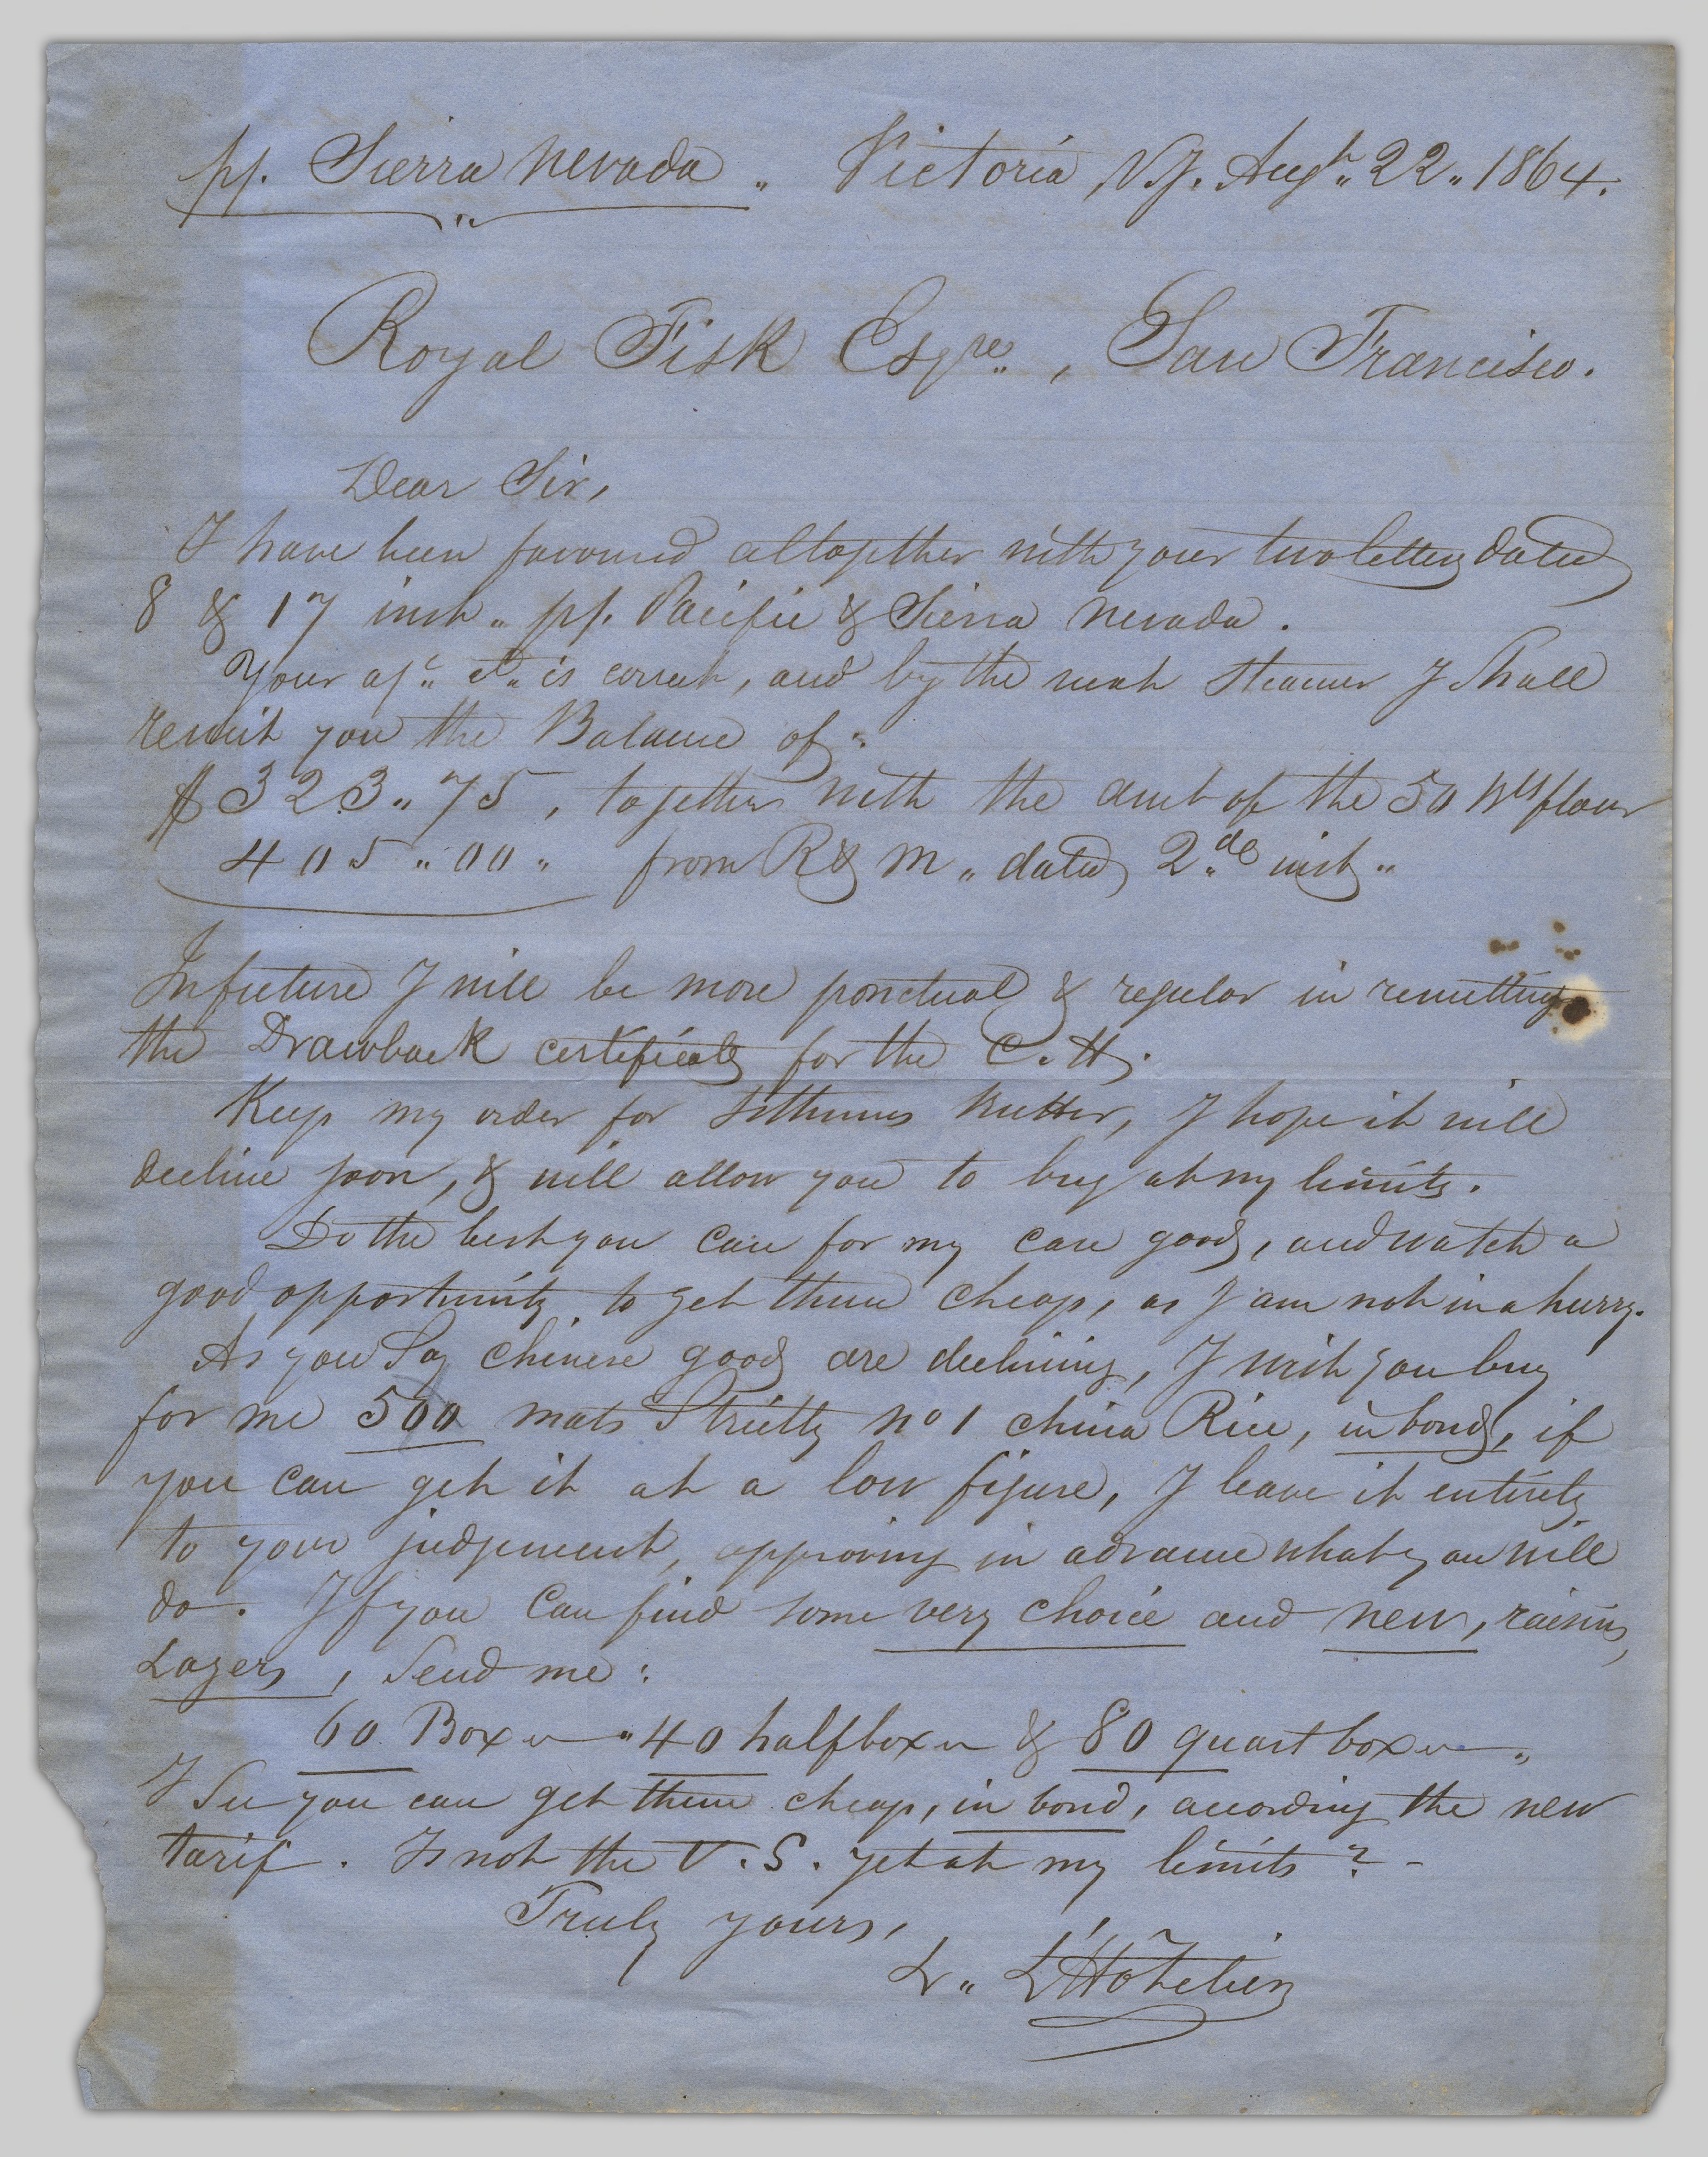 pp. Sierra Nevada „ Victoria, V.J. Augt „ 22 „ 1864.
Royal Fisk Esqre „, San Francisco.
Dear Sir,
I have been favoured altogether with your two letters dated
8 & 17 inst „ pp. Pacific & Sierra Nevada.
Your a/c „ is correct, and by the next steamer I Shall
remit you the Balance of:
$ 323 „ 75, together with the amt of the 50 Bls flour
405 „ 00 „ from R & M „ dated 2de inst „
In future I will be more ponctual & regular in remitting
the Drawback certificats for the C. H.
Keep my order for Isthmus Butter, I hope it will
decline soon, & will allow you to buy at my limits.
Do the best you can for my case goods, and watch a
good opportunity to get them cheap, as I am not in a hurry.
As you Say Chinese goods are declining, I wish you buy
for me 500 mats Strictly No 1 china Rice, in bond, if
you can get it at a low figure, I leave it entirely
to your judgement, approving in advance what you will
do. If you can find some very choice and new, raisins,
Layers, Send me:
60 Boxes „ 40 half boxes & 80 quart boxes „
I See you can get them cheap, in bond, acording the new
tarif. Is not the V. S. yet at my limits? -
Truly yours,
L „ L'Hôtelier